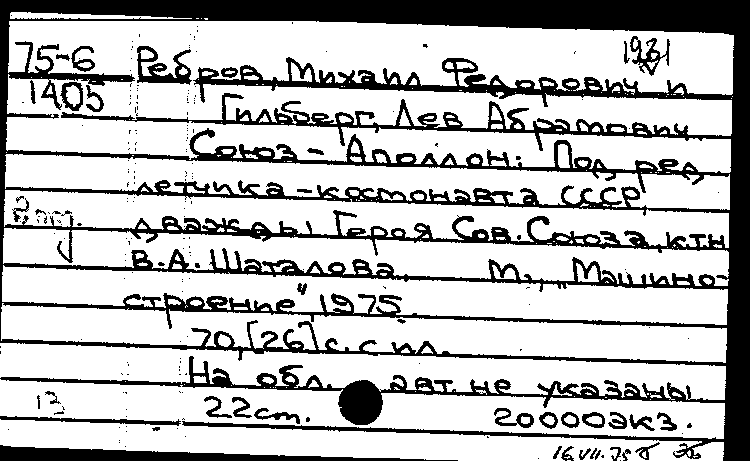 1931
75-6 Ребров, Михаил Федорович и
1405 Гильберг, Лев Абрамович.
Союз - Аполлон: Под ред.
летчика-космонавта СССР,
дважды Героя Сов. Союза, ктн
В.А. Шаталова. М., „Машино-
строение", 1975.
70, [26] с. с ил.
На обл. авт. не указаны.
13 22 см. 20000 экз.
16.VII.75